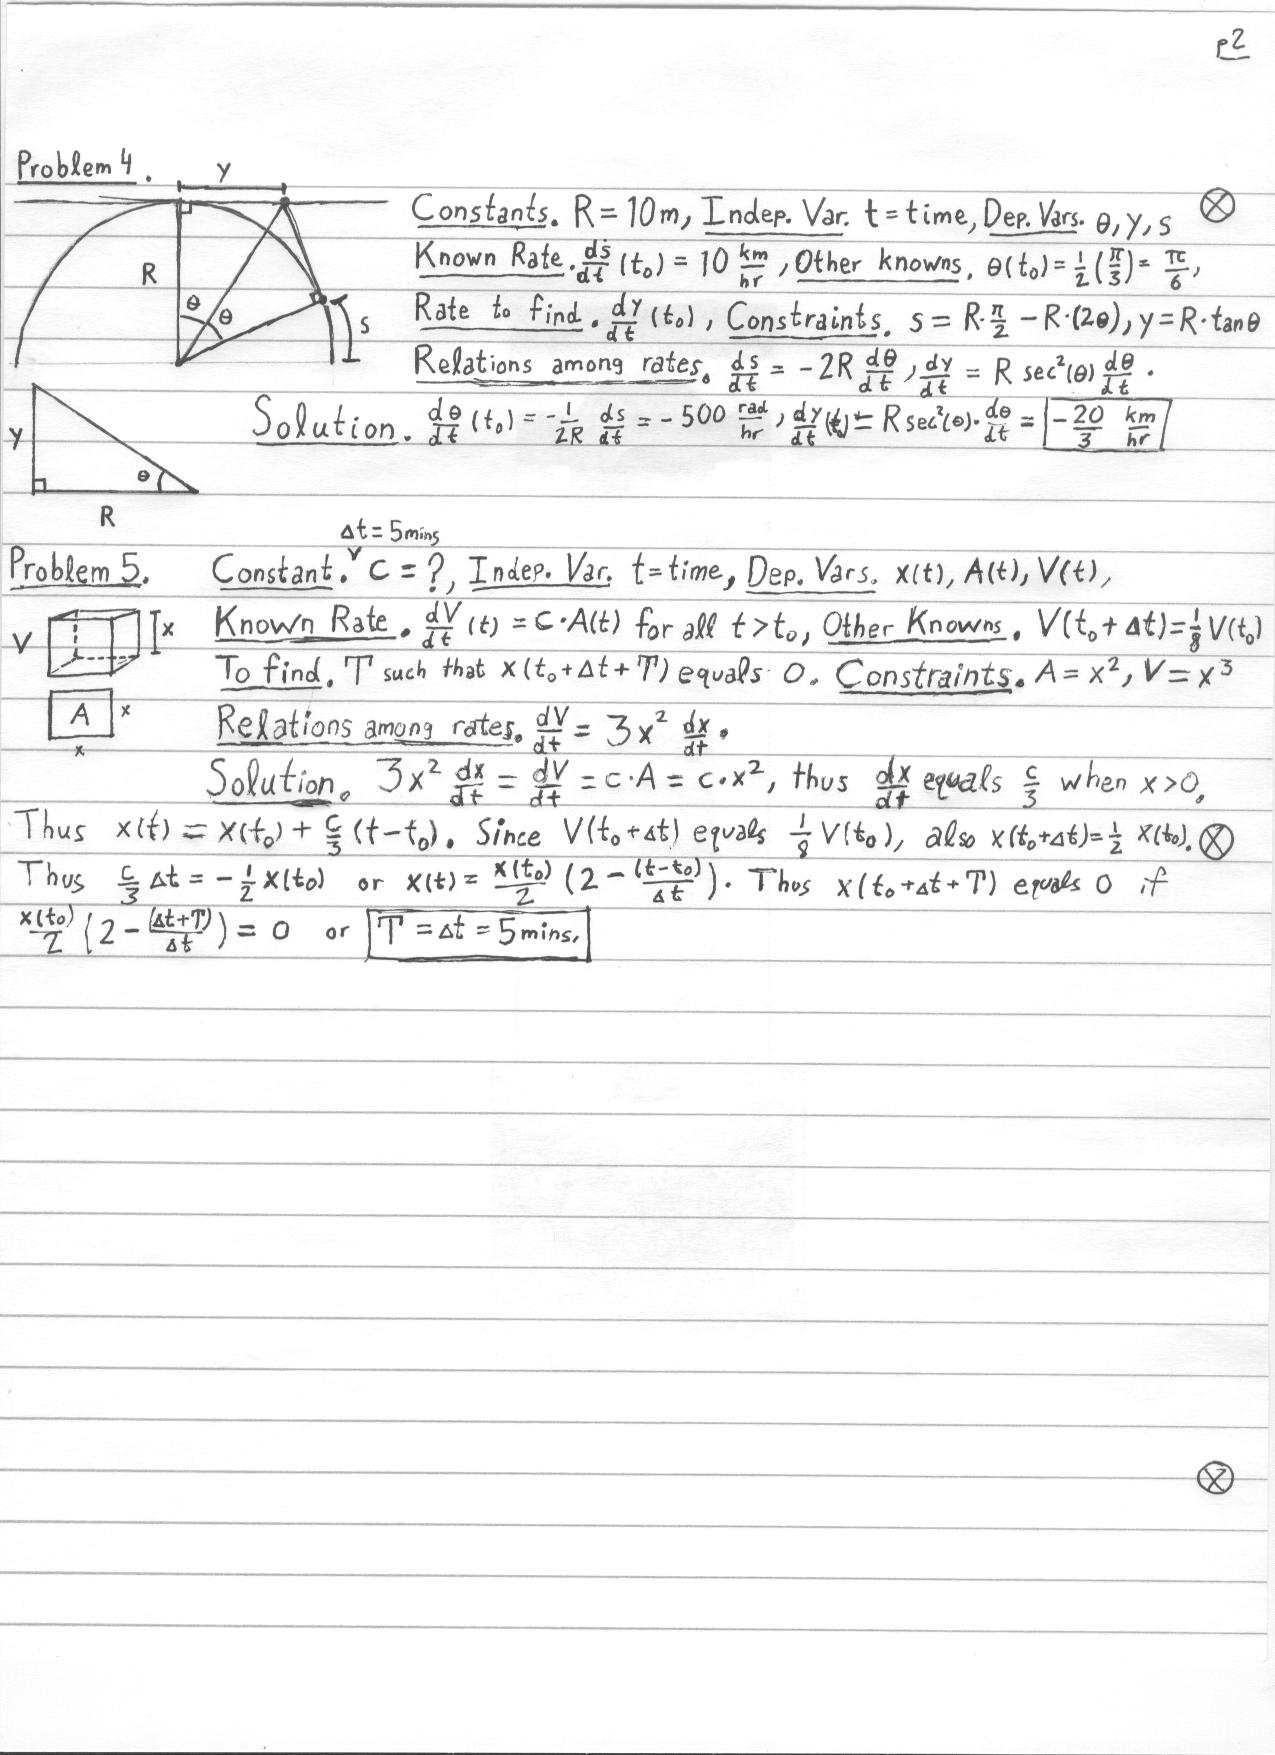 p2
Problem 4.
y
R
θ
θ
s
Constants. R = 10m, Indep. Var. t = time, Dep. Vars. θ, y, s
Known Rate. ds/dt (t₀) = 10 km/hr, Other knowns. θ(t₀) = 1/2(π/3) = π/6,
Rate to find. dy/dt (t₀), Constraints. s = R·π/2 − R·(2θ), y = R·tanθ
Relations among rates. ds/dt = −2R dθ/dt, dy/dt = R sec²(θ) dθ/dt.
Solution. dθ/dt (t₀) = −1/2R ds/dt = −500 rad/hr, dy/dt (t₀) = R sec²(θ)·dθ/dt = −20/3 km/hr
y
θ
R
Δt = 5mins
Problem 5. Constant. ˅ C = ?, Indep. Var. t = time, Dep. Vars. x(t), A(t), V(t),
V
x
Known Rate. dV/dt (t) = C·A(t) for all t > t₀, Other Knowns. V(t₀ + Δt) = 1/8 V(t₀)
To find. T such that x(t₀ + Δt + T) equals 0. Constraints. A = x², V = x³
A
x
x
Relations among rates. dV/dt = 3x² dx/dt.
Solution. 3x² dx/dt = dV/dt = c·A = c·x², thus dx/dt equals c/3 when x > 0.
Thus x(t) = x(t₀) + c/3 (t − t₀). Since V(t₀ + Δt) equals 1/8 V(t₀), also x(t₀ + Δt) = 1/2 x(t₀).
Thus c/3 Δt = −1/2 x(t₀) or x(t) = x(t₀)/2 (2 − (t−t₀)/Δt). Thus x(t₀ + Δt + T) equals 0 if
x(t₀)/2 (2 − (Δt+T)/Δt) = 0 or T = Δt = 5mins.